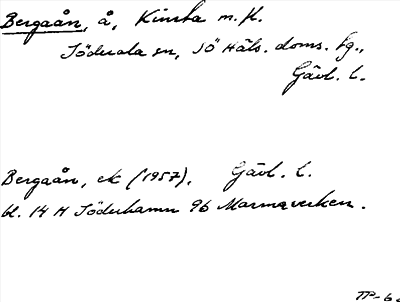 Bergaån, å, Kinsta m. fl.
Söderala sn, SÖ Häls. doms. fg.,
Gävl. l.
Bergaån, ek (1957). Gävl. l.
bl. 14 H Söderhamn 9b Marmaverken.
TP-6